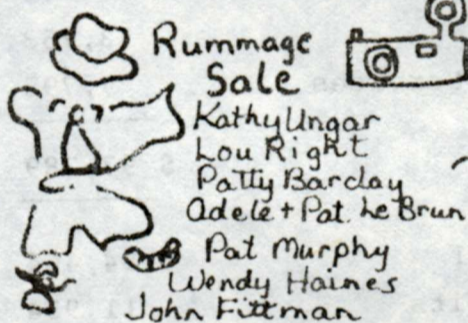 Rummage
Sale
Kathy Ungar
Lou Right
Patty Barclay
Adele + Pat. Le Brun
Pat Murphy
Wendy Haines
John Fittman